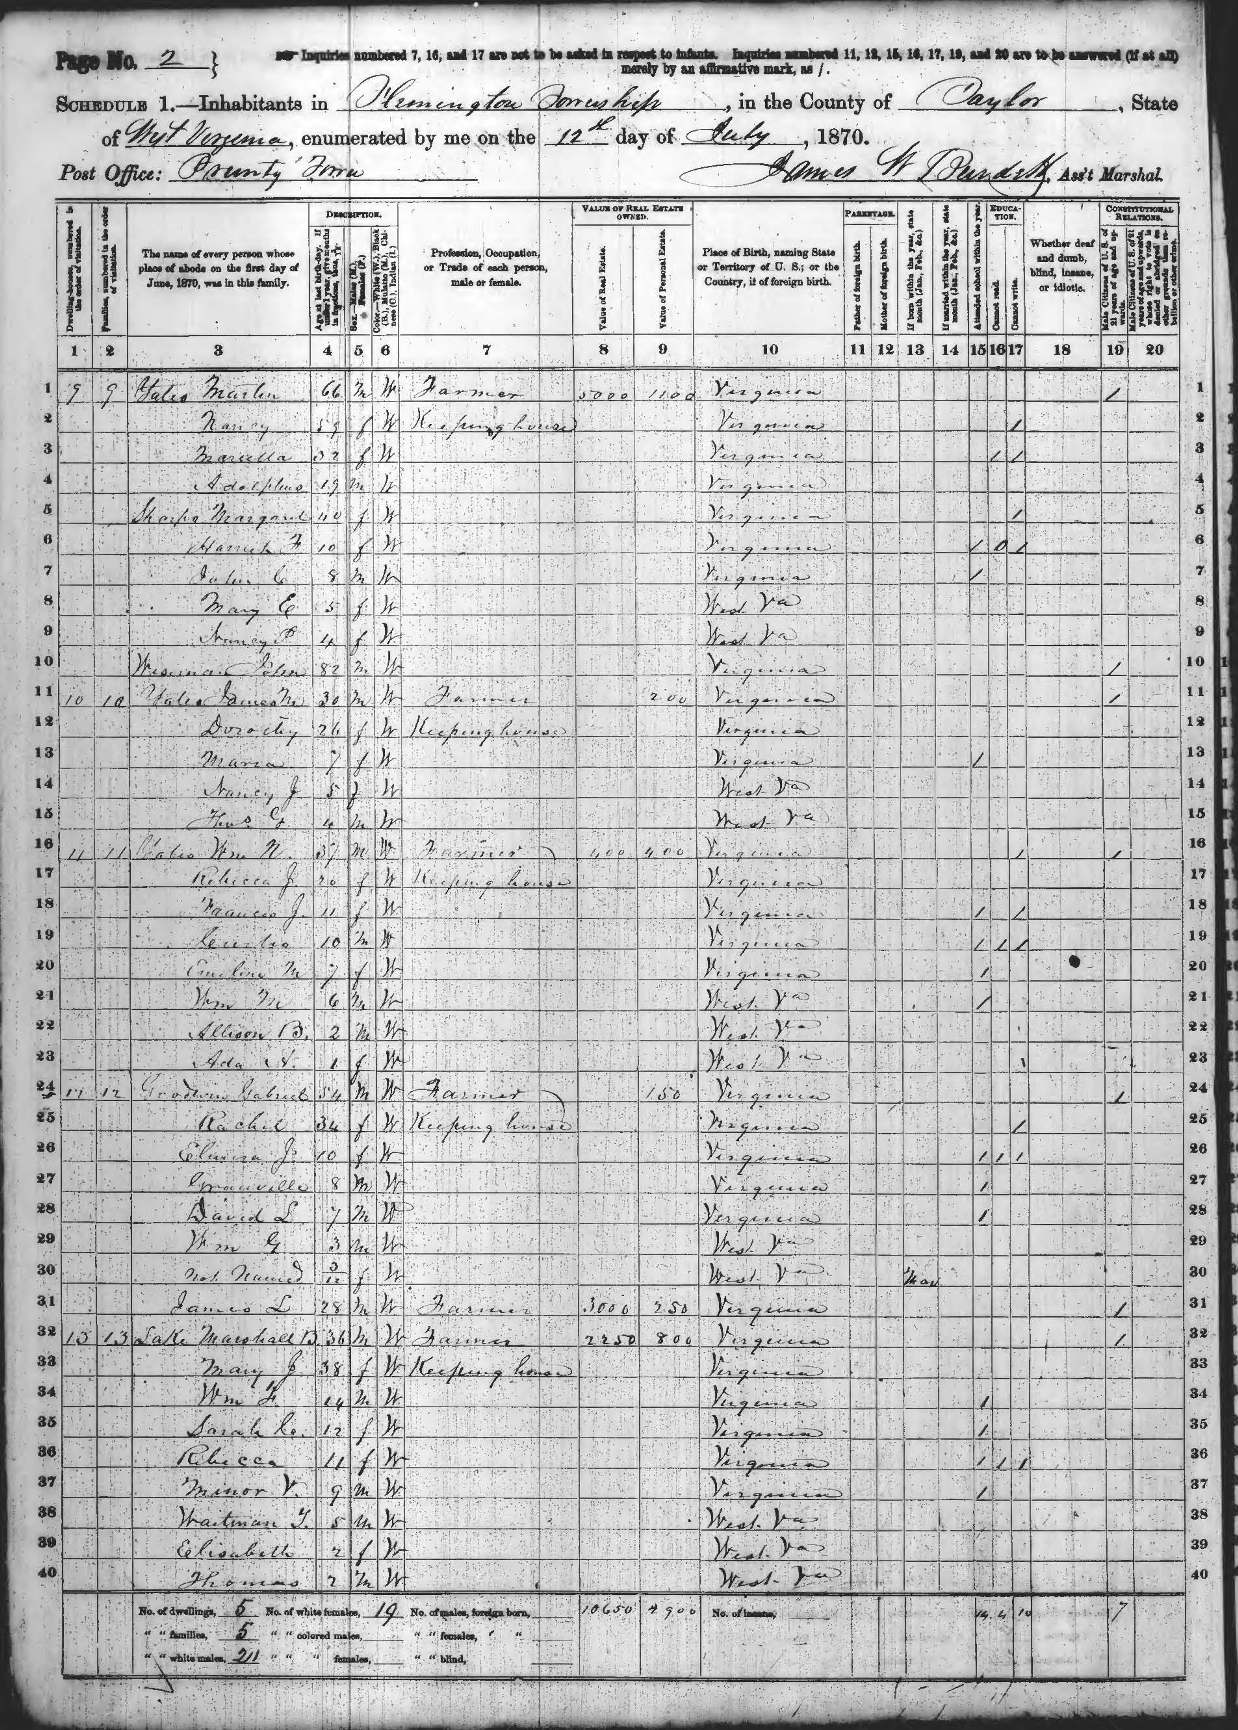 Page No. 2 }
Inquiries numbered 7, 16, and 17 are not to be asked in respect to infants. Inquiries numbered 11, 12, 15, 16, 17, 19, and 20 are to be answered (if at all)
merely by an affirmative mark, as /.
SCHEDULE 1.—Inhabitants in Flemington Township, in the County of Taylor, State
of West Virginia, enumerated by me on the 12th day of July, 1870.
Post Office: Pruntytown
James W, Ass't Marshal.
Dwelling-houses, numbered in the order of visitation.
Families, numbered in the order of visitation.
The name of every person whose place of abode on the first day of June, 1870, was in this family.
DESCRIPTION.
Age at last birth-day. If under 1 year, give months in fractions, thus, 3/12
Sex.—Males (M.), Females (F.)
Color.—White (W.), Black (B.), Mulatto (M.), Chinese (C.), Indian (I.)
Profession, Occupation, or Trade of each person, male or female.
VALUE OF REAL ESTATE OWNED.
Value of Real Estate.
Value of Personal Estate.
Place of Birth, naming State or Territory of U. S.; or the Country, if of foreign birth.
PARENTAGE.
Father of foreign birth.
Mother of foreign birth.
If born within the year, state month (Jan., Feb., &c.)
If married within the year, state month (Jan., Feb., &c.)
Attended school within the year.
EDUCATION.
Cannot read.
Cannot write.
Whether deaf and dumb, blind, insane, or idiotic.
CONSTITUTIONAL RELATIONS.
Male Citizens of U. S. of 21 years of age and upwards.
Male Citizens of U. S. of 21 years of age and upwards, whose right to vote is denied or abridged on other grounds than rebellion or other crime.
1 2 3 4 5 6 7 8 9 10 11 12 13 14 15 16 17 18 19 20
1 9 9 Yates Martin 66 M W Farmer 5000 1100 Virginia / 1
2 Nancy 59 f W Keeping house Virginia / 2
3 Marcella 32 f W Virginia / / 3
4 Adolphus 19 M W Virginia 4
5 Sharps Margaret 40 f W Virginia / 5
6 Harriet F 10 f W Virginia / 0 / 6
7 John C 8 M W Virginia / 7
8 Mary E 5 f W West Va 8
9 Nancy 4 f W West Va 9
10 Wiseman John 82 M W Virginia / 10
11 10 10 Yates James M 30 M W Farmer 200 Virginia / 11
12 Dorothy 26 f W Keeping house Virginia 12
13 Maria 7 f W Virginia / 13
14 Nancy J 5 f W West Va 14
15 Thos G 4 M W West Va 15
16 11 11 Yates Wm W. 37 M W Farmer 400 400 Virginia / / 16
17 Rebecca J 30 f W Keeping house Virginia 17
18 Francis J. 11 f W Virginia / / 18
19 10 M W Virginia / / / 19
20 Emeline M 7 f W Virginia / 20
21 Wm M 6 M W West Va / 21
22 Allison B. 2 M W West Va 22
23 Ada 1 f W West Va 23
24 12 12 Goodwin Gabriel 54 M W Farmer 150 Virginia / 24
25 Rachel 34 f W Keeping house Virginia / 25
26 Elmira J. 10 f W Virginia / / / 26
27 Granville 8 M W Virginia / 27
28 David L 7 M W Virginia / 28
29 Wm G 3 M W West Va 29
30 Not Named 3/12 f W West Va Mar 30
31 James L 28 M W Farmer 3000 250 Virginia / 31
32 13 13 Lake Marshall B 36 M W Farmer 2250 800 Virginia / 32
33 Mary J 38 f W Keeping house Virginia 33
34 Wm F. 14 M W Virginia / 34
35 Sarah C. 12 f W Virginia / 35
36 Rebecca 11 f W Virginia / / / 36
37 Minor V. 9 M W Virginia / 37
38 Waitman T. 5 M W West Va 38
39 Elisabeth 2 f W West Va 39
40 Thomas 2 M W West Va 40
No. of dwellings, 5 No. of white females, 19 No. of males, foreign born, 10650 2900 No. of insane, 14 4 10 7
" " families, 5 " " colored males, " " females, " "
" " white males, 21 " " " females, " " blind,